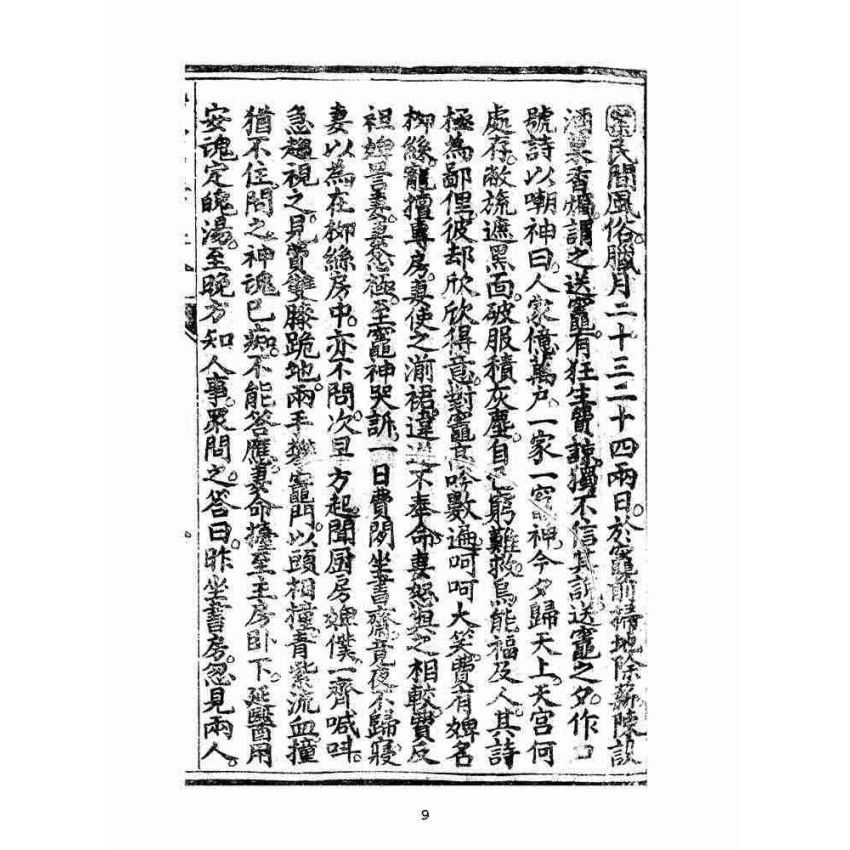 民間風俗臘月二十三二十四兩日。於竈前掃地除薪陳設
酒菓香燭謂之送竈。有狂生費諒獨不信其訴送竈之夕。作口
號詩以嘲神曰。人家億萬戶一家一竈神今夕歸天上。天宮何
處存。敝旒遮黑面。破服積灰塵。自己窮難救。烏能福及人。其詩
極為鄙俚。彼却欣欣得意。對竈高吟數遍。呵呵大笑。費有婢名
柳絲。寵擅專房。妻使之湔裙。違不奉命。妻怒與之相較。費反
袒婢詈妻。妻忿極。至竈神哭訴。一日費閑坐書齋。竟夜不歸寢。
妻以為在柳絲房中。亦不問。次旦方起。聞厨房婢僕一齊喊叫。
急趨視之。見費雙膝跪地。兩手攀竈門。以頭相撞。青紫流血。撞
猶不住。問之神魂已痴。不能答應。妻命擡至主房卧下。延醫用
安魂定魄湯。至晚方知人事。眾問之。答曰。昨坐書房。忽見兩人。
9